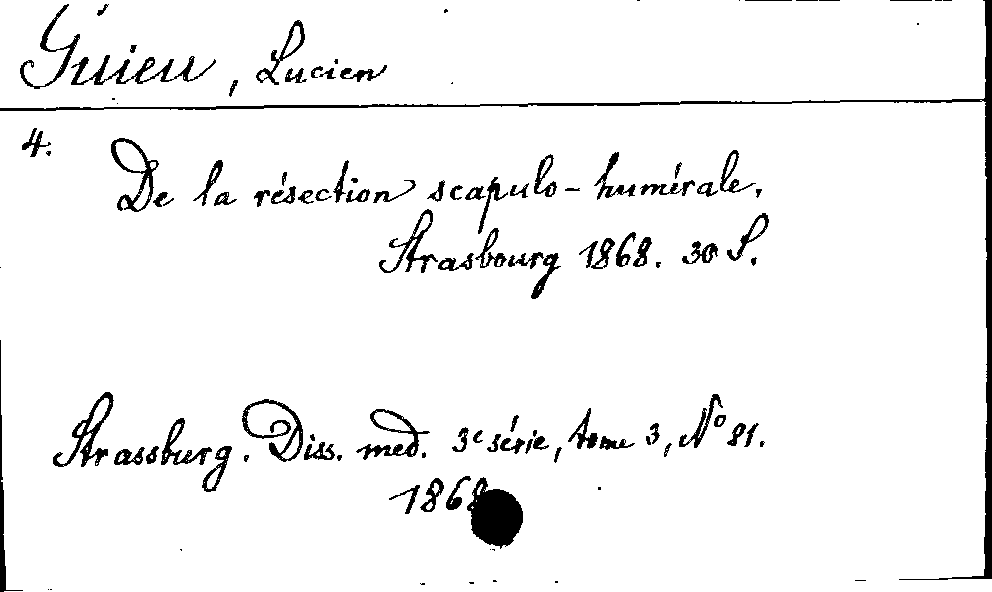 Guieu, Lucien
4.
De la résection scapulo-humérale.
Strasbourg 1868. 30 S.
Strassburg. Diss. med. 3e série, tome 3, No 81.
1868